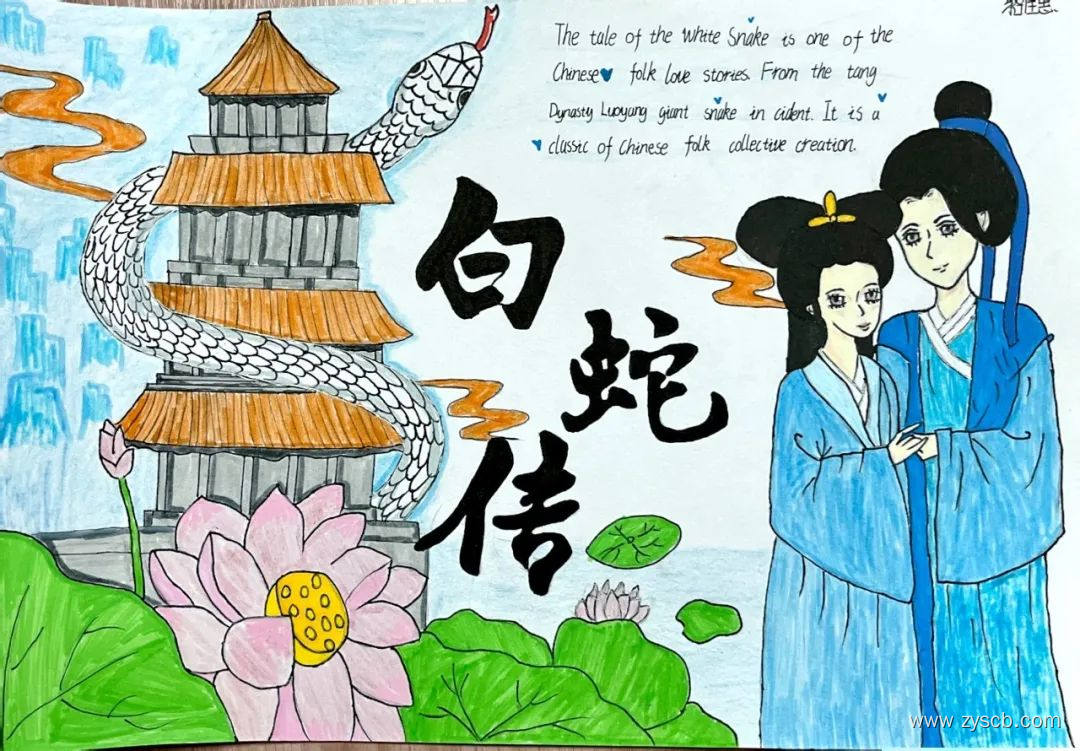 The tale of the White Snake is one of the
Chinese folk love stories. From the tang
Dynasty Luoyang giant snake in cident. It is a
classic of Chinese folk collective creation.
白
蛇
佶
www.zyscb.com